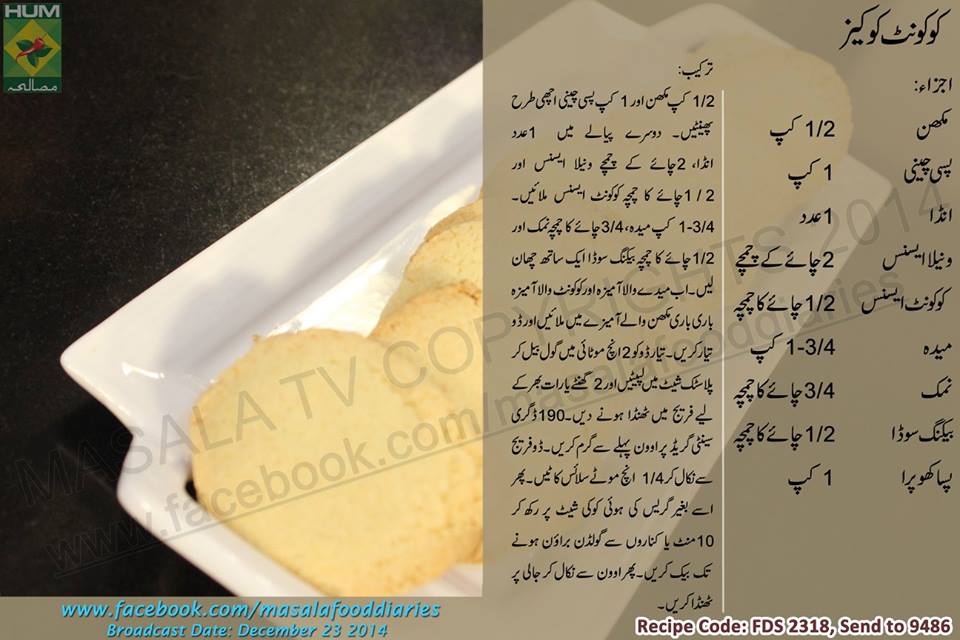 HUM
مصالحہ
کوکونٹ کوکیز
اجزاء:
مکھن 1/2 کپ
پسی چینی 1 کپ
انڈا 1عدد
ونیلا ایسنس 2چائے کے چمچے
کوکونٹ ایسنس 1/2 چائے کا چمچہ
میدہ 1-3/4 کپ
نمک 3/4 چائے کا چمچہ
بیکنگ سوڈا 1/2 چائے کا چمچہ
پسا کھوپرا 1 کپ
ترکیب:
1/2 کپ مکھن اور 1 کپ پسی چینی اچھی طرح
پھینٹیں۔ دوسرے پیالے میں 1عدد
انڈا، 2چائے کے چمچے ونیلا ایسنس اور
1/2 چائے کا چمچہ کوکونٹ ایسنس ملائیں۔
1-3/4 کپ میدہ، 3/4 چائے کا چمچہ نمک اور
1/2 چائے کا چمچہ بیکنگ سوڈا ایک ساتھ چھان
لیں۔ اب میدے والا آمیزہ اور کوکونٹ والا آمیزہ
باری باری مکھن والے آمیزے میں ملائیں اور ڈو
تیار کریں۔ تیار ڈو کو 2 انچ موٹائی میں گول بیل کر
پلاسٹک شیٹ میں لپیٹیں اور 2 گھنٹے یا رات بھر کے
لیے فریج میں ٹھنڈا ہونے دیں۔ 190 ڈگری
سینٹی گریڈ پر اوون پہلے سے گرم کریں۔ ڈو فریج
سے نکال کر 1/4 انچ موٹے سلائس کاٹیں۔ پھر
اسے بغیر گریس کی ہوئی کوکی شیٹ پر رکھ کر
10 منٹ یا کناروں سے گولڈن براؤن ہونے
تک بیک کریں۔ پھر اوون سے نکال کر جالی پر
ٹھنڈا کریں۔
MASALA TV COPYRIGHTS 2014
www.facebook.com/masalafooddiaries
www.facebook.com/masalafooddiaries
Broadcast Date: December 23 2014
Recipe Code: FDS 2318, Send to 9486